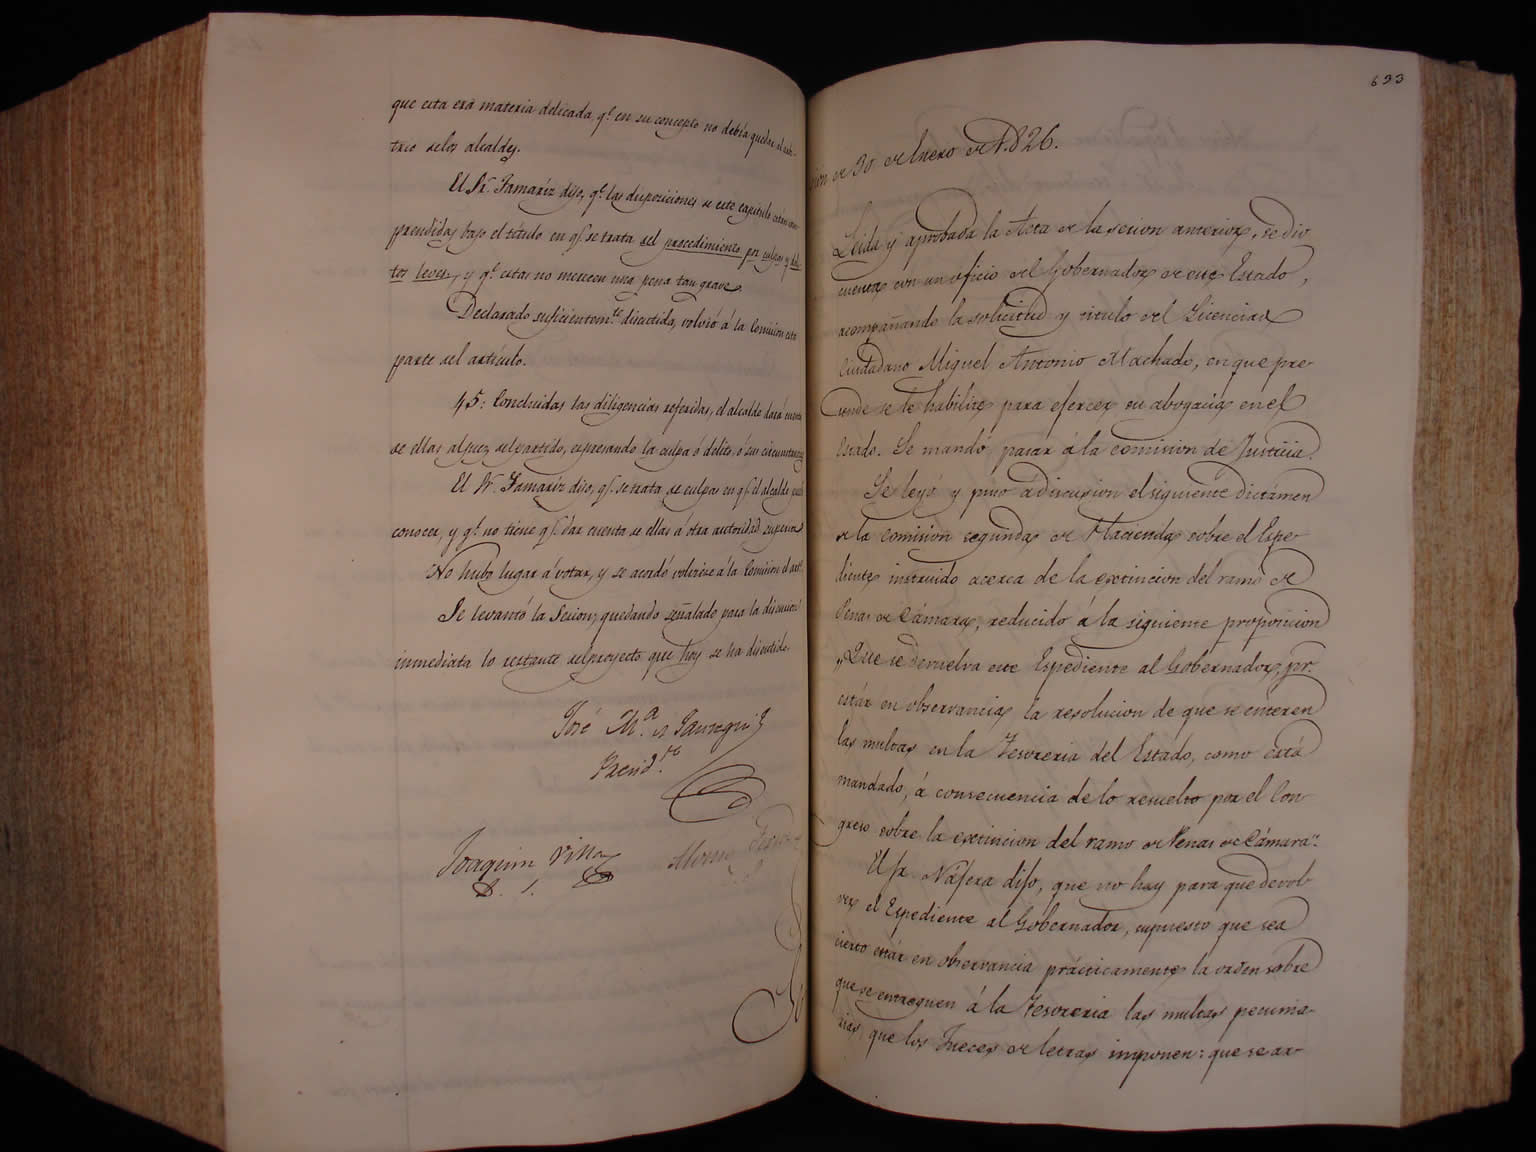 que esta era materia delicada, q.e en su concepto no debía quedar al arbi-
trio delos alcaldes.
El Sr. Tamaríz dijo, q.e las disposiciones de este capitulo están com-
prendidas bajo el título en q.e se trata del procedimiento por culpas y deli-
tos leves, y q.e estas no merecen una pena tan grave.
Declarado suficientem.te discutida, volvió á la Comision esta
parte del artículo.
45: Concluidas las diligencias referidas, el alcalde dará cuenta
de ellas al juez del partido, espresando la culpa ó delito, ó sus circunstancias
El Sr. Tamaríz dijo, q.e se trata de culpas en q.e el alcalde puede
conocer, y q.e no tiene q.e dar cuenta de ellas á otra autoridad superior
No hubo lugar á votar, y se acordó volviese á la Comision el art.
Se levantó la Sesion, quedando señalado para la discusion
inmediata lo restante del proyecto que hoy se ha discutido.
José M.a de Jauregui
Presid.te
Joaquin Villa
D. S.
633
de 30 de Enero de 1.826.
Leida y aprobada la Acta de la sesion anterior, se dio
cuenta con un oficio del Gobernador de este Estado,
acompañando la solicitud y titulo del Licenciado
Ciudadano Miguel Antonio Machado, en que pre-
tende se le habilite para ejercer su abogacia en el
Estado. Se mandó pasar á la comision de Justicia.
Se leyó y puso á discusion el siguiente dictámen
de la comision segunda de Hacienda sobre el Espe-
diente instruido acerca de la extincion del ramo de
Penas de Cámara, reducido á la siguiente proposicion
"Que se devuelva este Espediente al Gobernador, pr.
estár en observancia la resolucion de que se enteren
las multas en la Tesoreria del Estado, como está
mandado, á consecuencia de lo resuelto por el Con-
greso sobre la extincion del ramo de Penas de Cámara".
El Sr. Nájera dijo, que no hay para que devol-
ver el Espediente al Gobernador, supuesto que sea
cierto estár en observancia prácticamente la orden sobre
que se entreguen á la Tesoreria las multas pecunia-
rias, que los Jueces de letras imponen: que se ar-